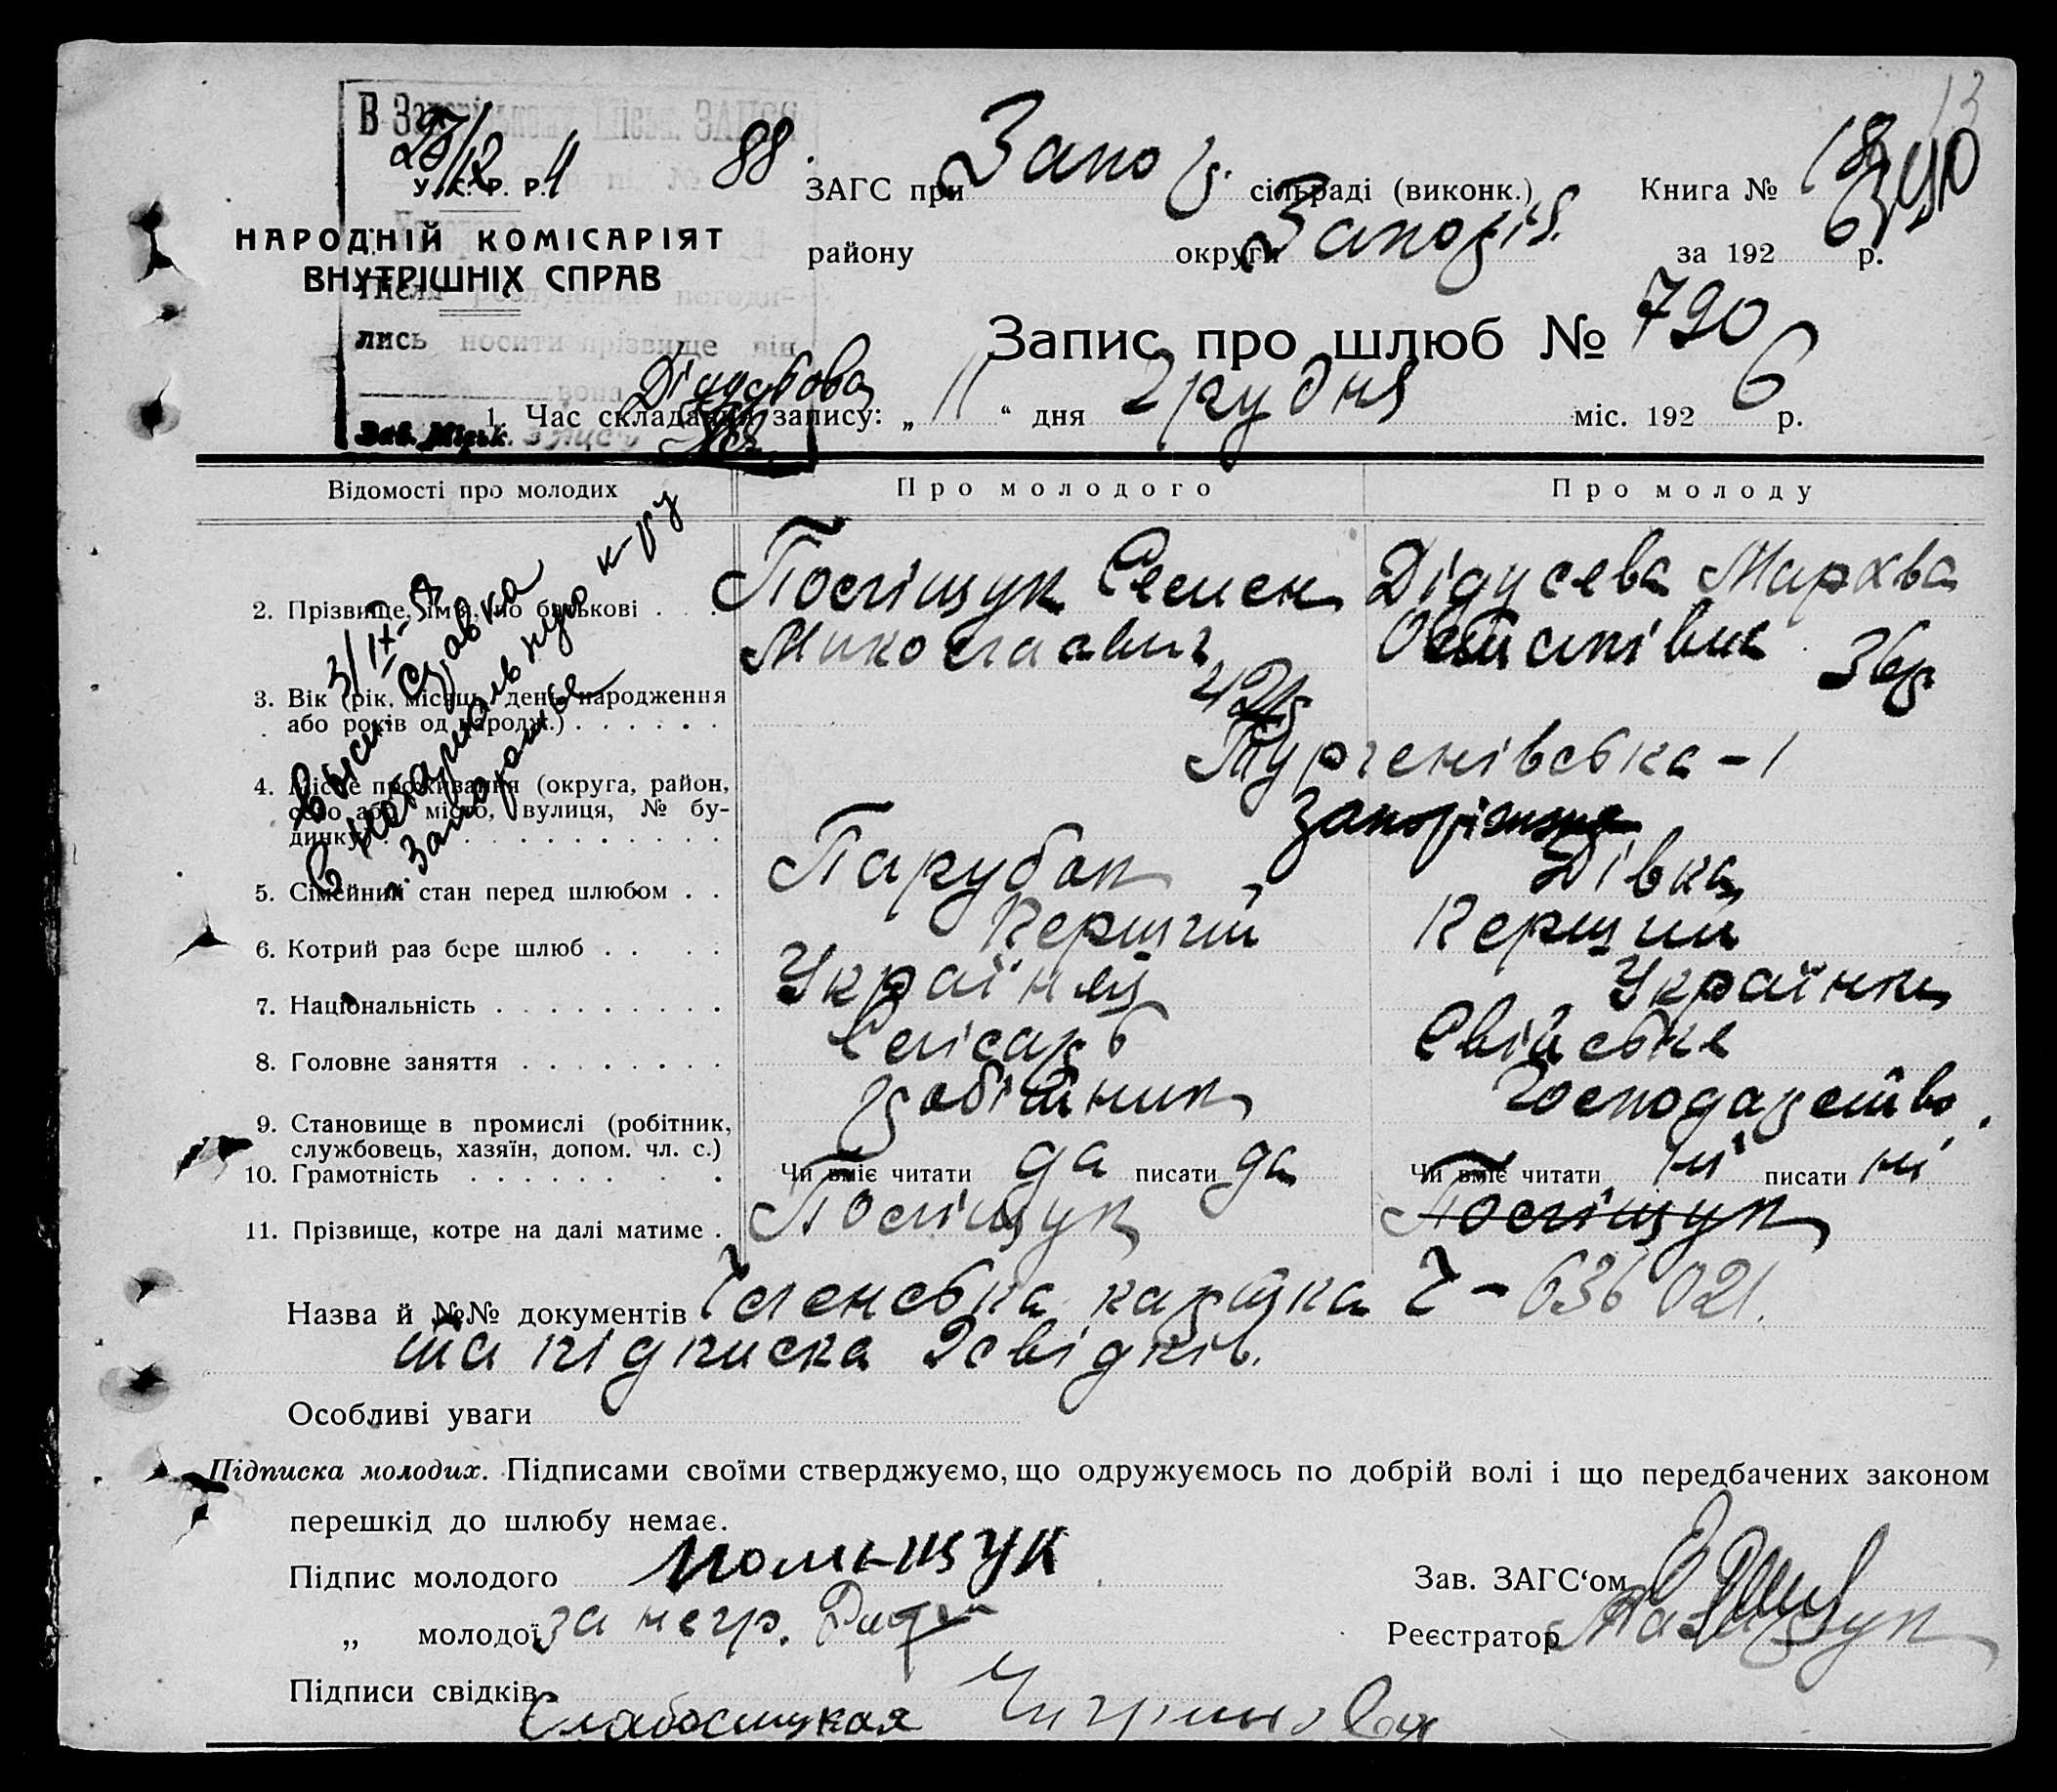 13
В Запорізькому Міськ. ЗАГСі
28/12
У. С. Р. Р.
88.
ЗАГС при Запор. сільраді (виконк.) Книга № 18
390
НАРОДНІЙ КОМІСАРІЯТ
ВНУТРІШНІХ СПРАВ
району округи Запоріз. за 192 6 р.
Після розлучення погоди-
лись носити прізвище він
вона Дідусєва
Зав. Міськ.
Запис про шлюб № 790
1. Час складання запису: „ 11 “ дня Грудня міс. 192 6 р.
Відомості про молодих Про молодого Про молоду
3/IX-
Справка
в нотаріальную к-ру
г. Запорожье
2. Прізвище, ім'я, по батькові . . . Поліщук Семен Дідусєва Мархва
Миколаавич Остапівна
3. Вік (рік, місяць, день народження 42р 36р
або років од народж.) . . . . . .
4. Місце проживання (округа, район, Тургенівська - 1
село або місто, вулиця, № бу- Запоріжжя
динку) . . . . . . . . . . . .
5. Сімейний стан перед шлюбом . . Парубок Дівка
6. Котрий раз бере шлюб . . . . Перший Перший
7. Національність . . . . . . . . . Українец Українка
8. Головне заняття . . . . . . . . Слісарь Свійське
9. Становище в промислі (робітник, робітник Господарство.
службовець, хазяїн, допом. чл. с.)
10. Грамотність . . . . . . . . Чи вміє читати да писати да Чи вміє читати ні писати ні
11. Прізвище, котре на далі матиме . Поліщук Поліщук
Назва й №№ документів Членська картка Ч - 636021.
та підписка 2 свідків.
Особливі уваги
Підписка молодих. Підписами своїми стверджуємо, що одружуємось по добрій волі і що передбачених законом
перешкід до шлюбу немає.
Підпис молодого Полыщук Зав. ЗАГС‘ом
„ молодої за негр. Реєстратор
Підписи свідків Слабосицкая